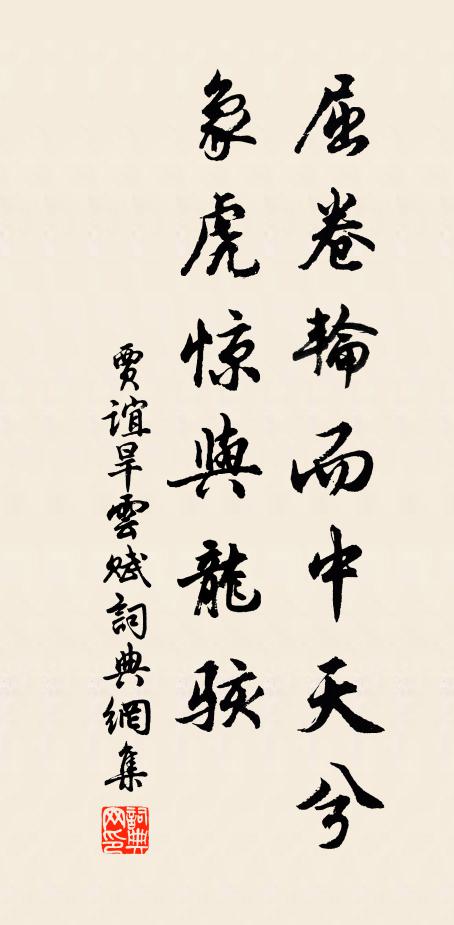 屈卷輪而中天兮
象虎惊與龍駭
賈誼旱雲赋詞典網集
詞典网印